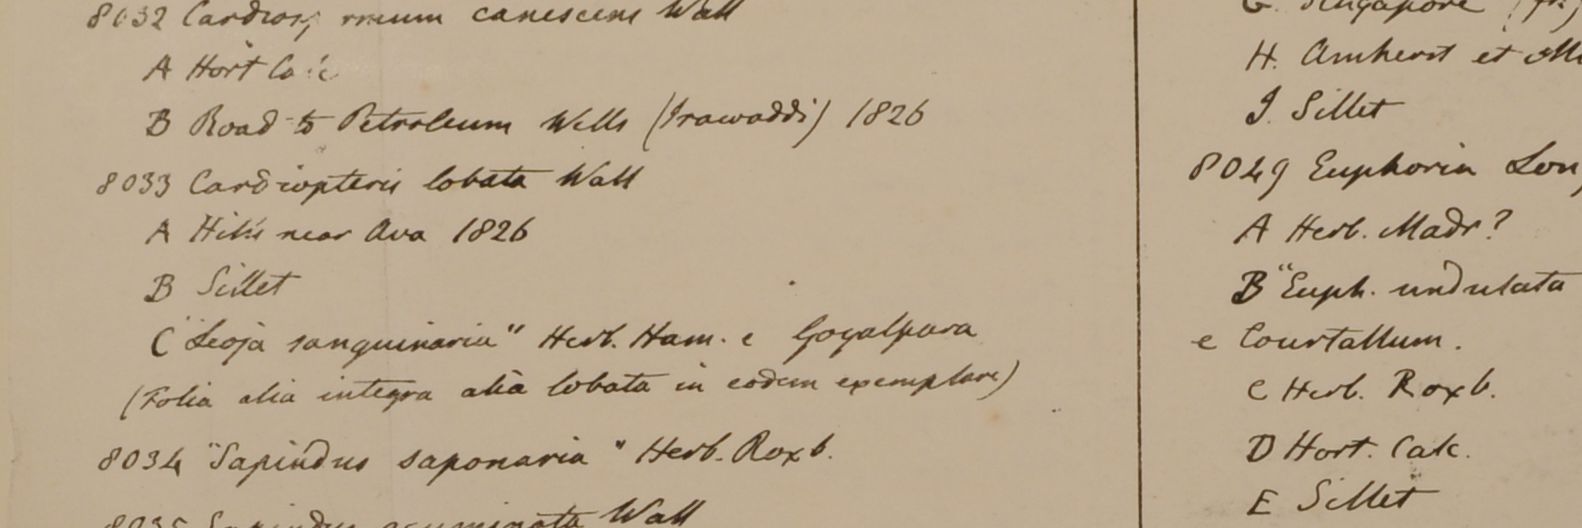 8032 Cardiospermum canescens Wall
A Hort Calc
B Road to Petroleum Wells (Irawaddi) 1826
8033 Cardiopteris lobata Wall
A Hills near Ava 1826
B Sillet
C "Leoja sanguinaria" Herb. Ham. e Goyalpara
(Folia alia integra alia lobata in eodem exemplare)
8034 "Sapindus saponaria" Herb. Roxb.
8035 Sapindus acuminata Wall
G. Singapore
H. Amherst et
J. Sillet
8049 Euphoria Lon
A Herb. Madr?
B "Euph. undulata
e Courtallum.
C Herb. Roxb.
D Hort. Calc.
E Sillet